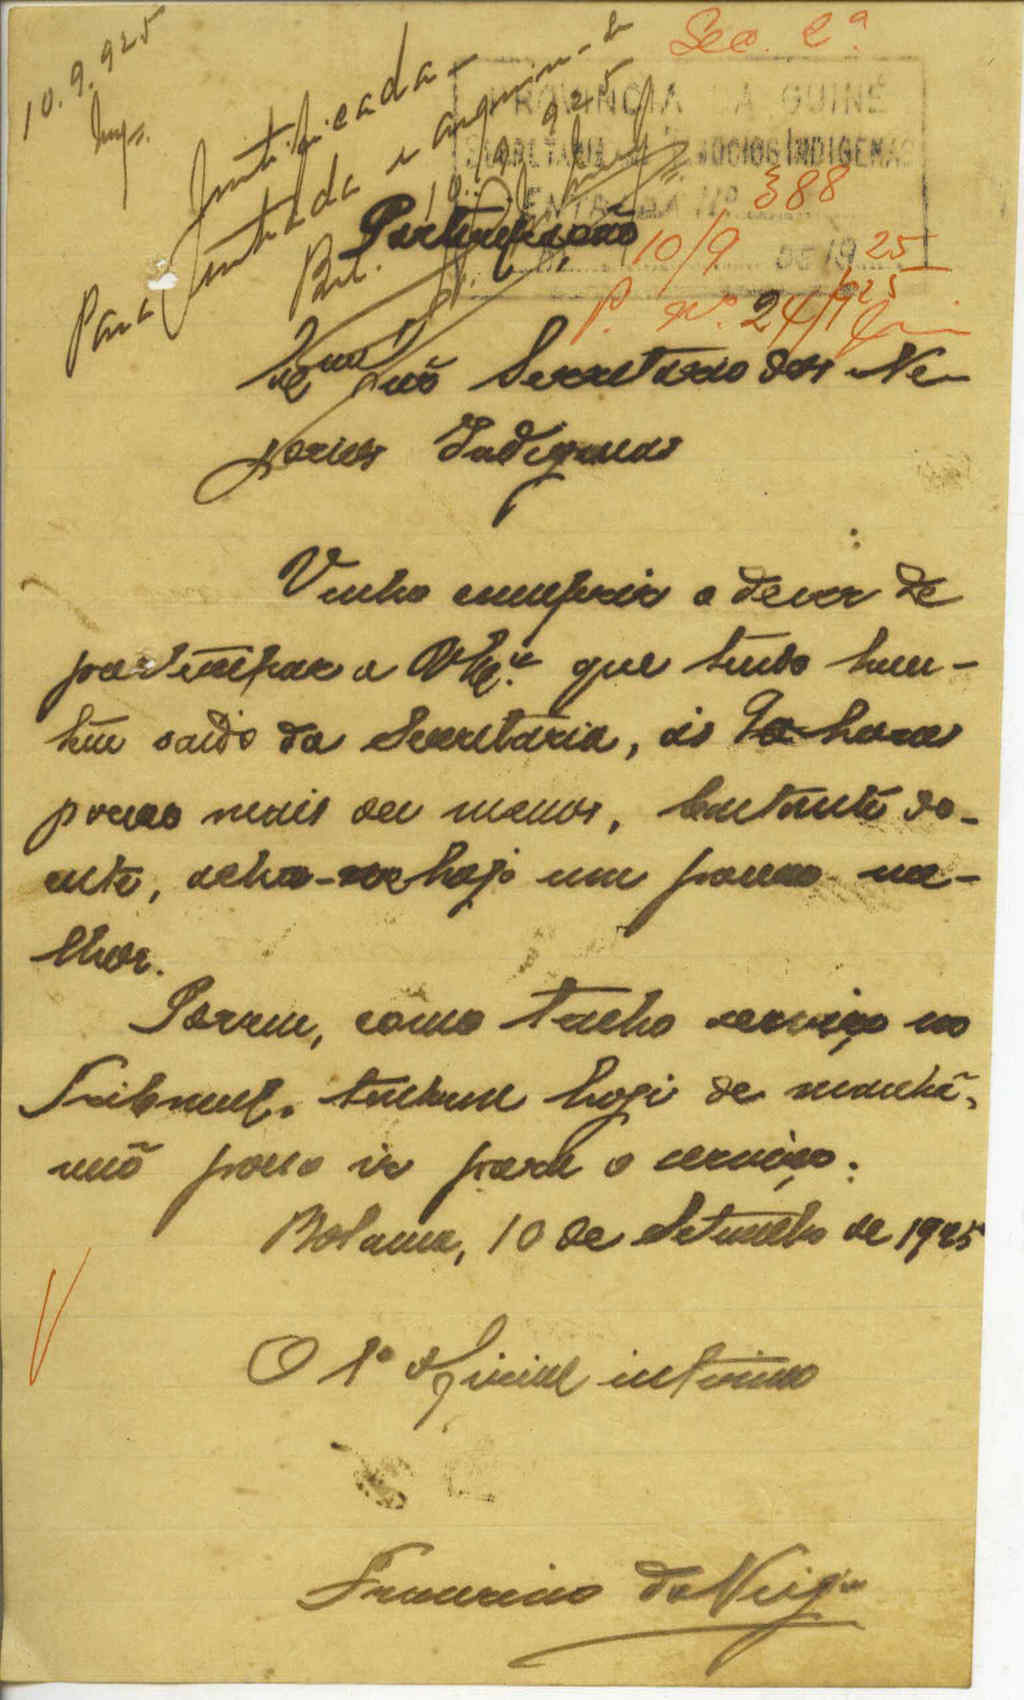 Sec. 2ª
10.9.925
PROVINCIA DA GUINÉ
SECRETARIA NEGOCIOS INDIGENAS
ENTRADA Nº 388
10/9 DE 19 25
P. nº 24/925
Justificada
Para juntada e arquivar-se
Bol. 10.9.925
Participação
Secretario dos Ne-
gocios Indigenas
Venho cumprir o dever de
participar a que tendo hon-
tem saido da Secretaria, ás horas
pouco mais ou menos, bastante do-
ente, acho-me hoje um pouco me-
lhor.
Porem, como tenho serviço no
Tribunal, tambem hoje de manhã,
não posso ir para o serviço.
Bolama, 10 de Setembro de 1925
O 1º oficial interino
da Veiga